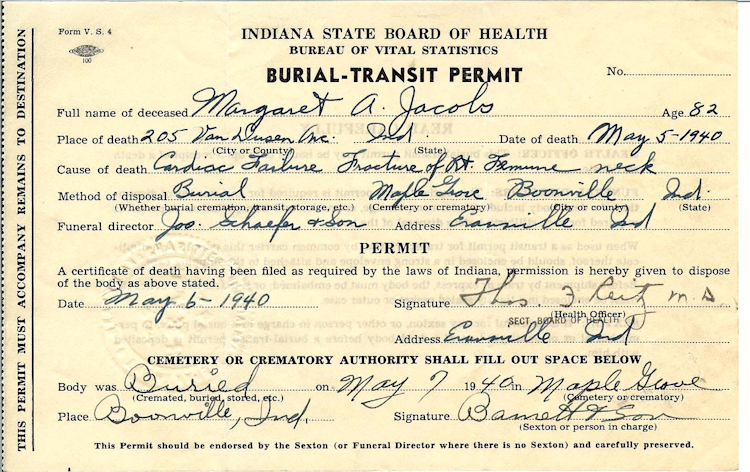 Form V. S. 4
100
INDIANA STATE BOARD OF HEALTH
BUREAU OF VITAL STATISTICS
BURIAL-TRANSIT PERMIT
No.
Full name of deceased Margaret A. Jacobs Age 82
Place of death 205 Van Dusen Ave. Ind. Date of death May 5-1940
(City or County) (State)
Cause of death Cardiac Failure Fracture of Rt Femure neck
Method of disposal Burial Maple Grove Boonville Ind.
(Whether burial cremation, transit, storage, etc.) (Cemetery or crematory) (City or county) (State)
Funeral director Jos. Schaefer & Son Address Evansville Ind
PERMIT
A certificate of death having been filed as required by the laws of Indiana, permission is hereby given to dispose
of the body as above stated.
Date May 6-1940 Signature Thos. F. Reitz M.D.
(Health Officer)
SECT. BOARD OF HEALTH
Address Evansville Ind
CEMETERY OR CREMATORY AUTHORITY SHALL FILL OUT SPACE BELOW
Body was Buried on May 7 1940 in Maple Grove
(Cremated, buried, stored, etc.) (Cemetery or crematory)
Place Boonville, Ind. Signature Barnett & Son
(Sexton or person in charge)
This Permit should be endorsed by the Sexton (or Funeral Director where there is no Sexton) and carefully preserved.
THIS PERMIT MUST ACCOMPANY REMAINS TO DESTINATION